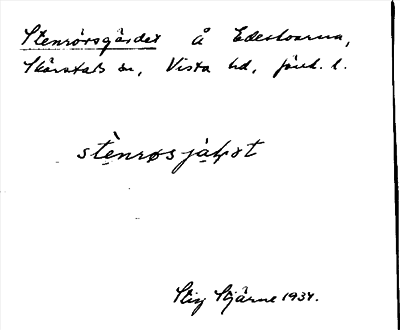 Stenrörsgärdet Å Edeskvarna,
Skärstads sn, Vista hd, Jönk. l.
stènrøs jàḷət
Stig Stjärne 1934.